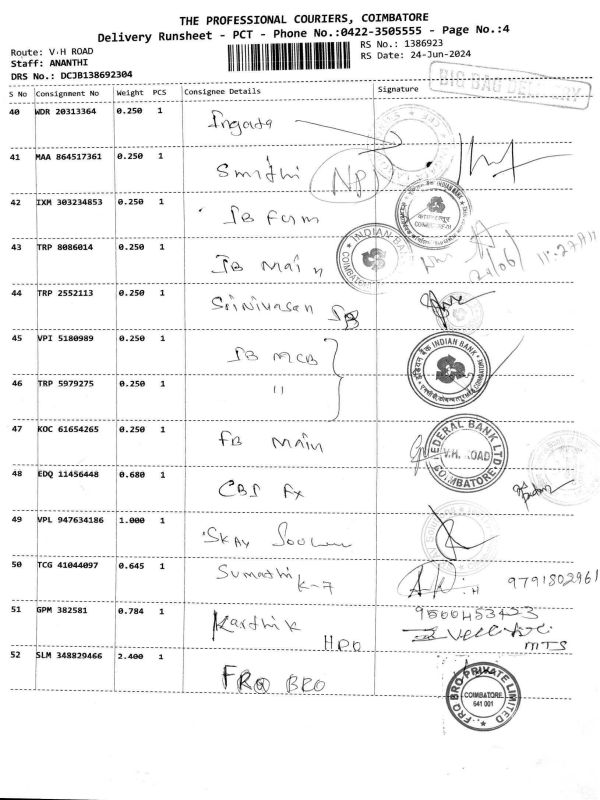 THE PROFESSIONAL COURIERS, COIMBATORE
Delivery Runsheet - PCT - Phone No.:0422-3505555 - Page No.:4
Route: V.H ROAD
Staff: ANANTHI
DRS No.: DCJB138692304
RS No.: 1386923
RS Date: 24-Jun-2024
BIG BAG DELIVERY
S No Consignment No Weight PCS Consignee Details Signature
40 WDR 20313364 0.250 1
41 MAA 864517361 0.250 1 Smrthi NP
42 IXM 303234853 0.250 1 IB Furm
INDIAN BANK
43 TRP 8086014 0.250 1 IB Main
INDIAN BANK
COIMBATORE
24/06/ 11.27AM
44 TRP 2552113 0.250 1 Srinivasan IB
45 VPI 5180989 0.250 1 IB MCB
इंडियन बैंक INDIAN BANK
46 TRP 5979275 0.250 1 "
47 KOC 61654265 0.250 1 FB Main
FEDERAL BANK LTD
V.H. ROAD
COIMBATORE
48 EDQ 11456448 0.680 1 CBI Fx
49 VPL 947634186 1.000 1 SKAY
50 TCG 41044097 0.645 1 Sumathi K-7 9791802961
51 GPM 382581 0.784 1 Karthik HPO
9500453423
MTS
52 SLM 348829466 2.400 1 FRQ BRO
FRQ BRO PRIVATE LIMITED
COIMBATORE
641 001